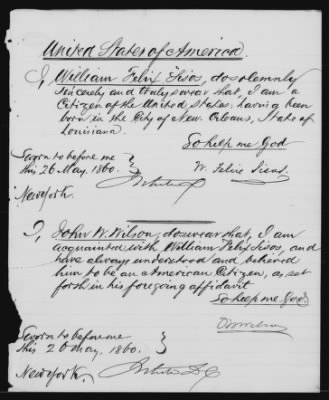 United States of America.
I, William Felix Sisos, do solemnly
sincerely and truly swear that, I am a
Citizen of the United States: having been
born in the City of New. Orleans, State of
Louisiana.
So help me God
W. Felix Sisos.
Sworn to before me
this 26 May. 1860.
New York.
I, John W. Wilson, do swear that, I am
acquainted with William Felix Sisos, and
have always understood and believed
him to be an American Citizen, as set
forth in his foregoing affidavit
So help me God
Sworn to before me
this 26 May. 1860.
New York.